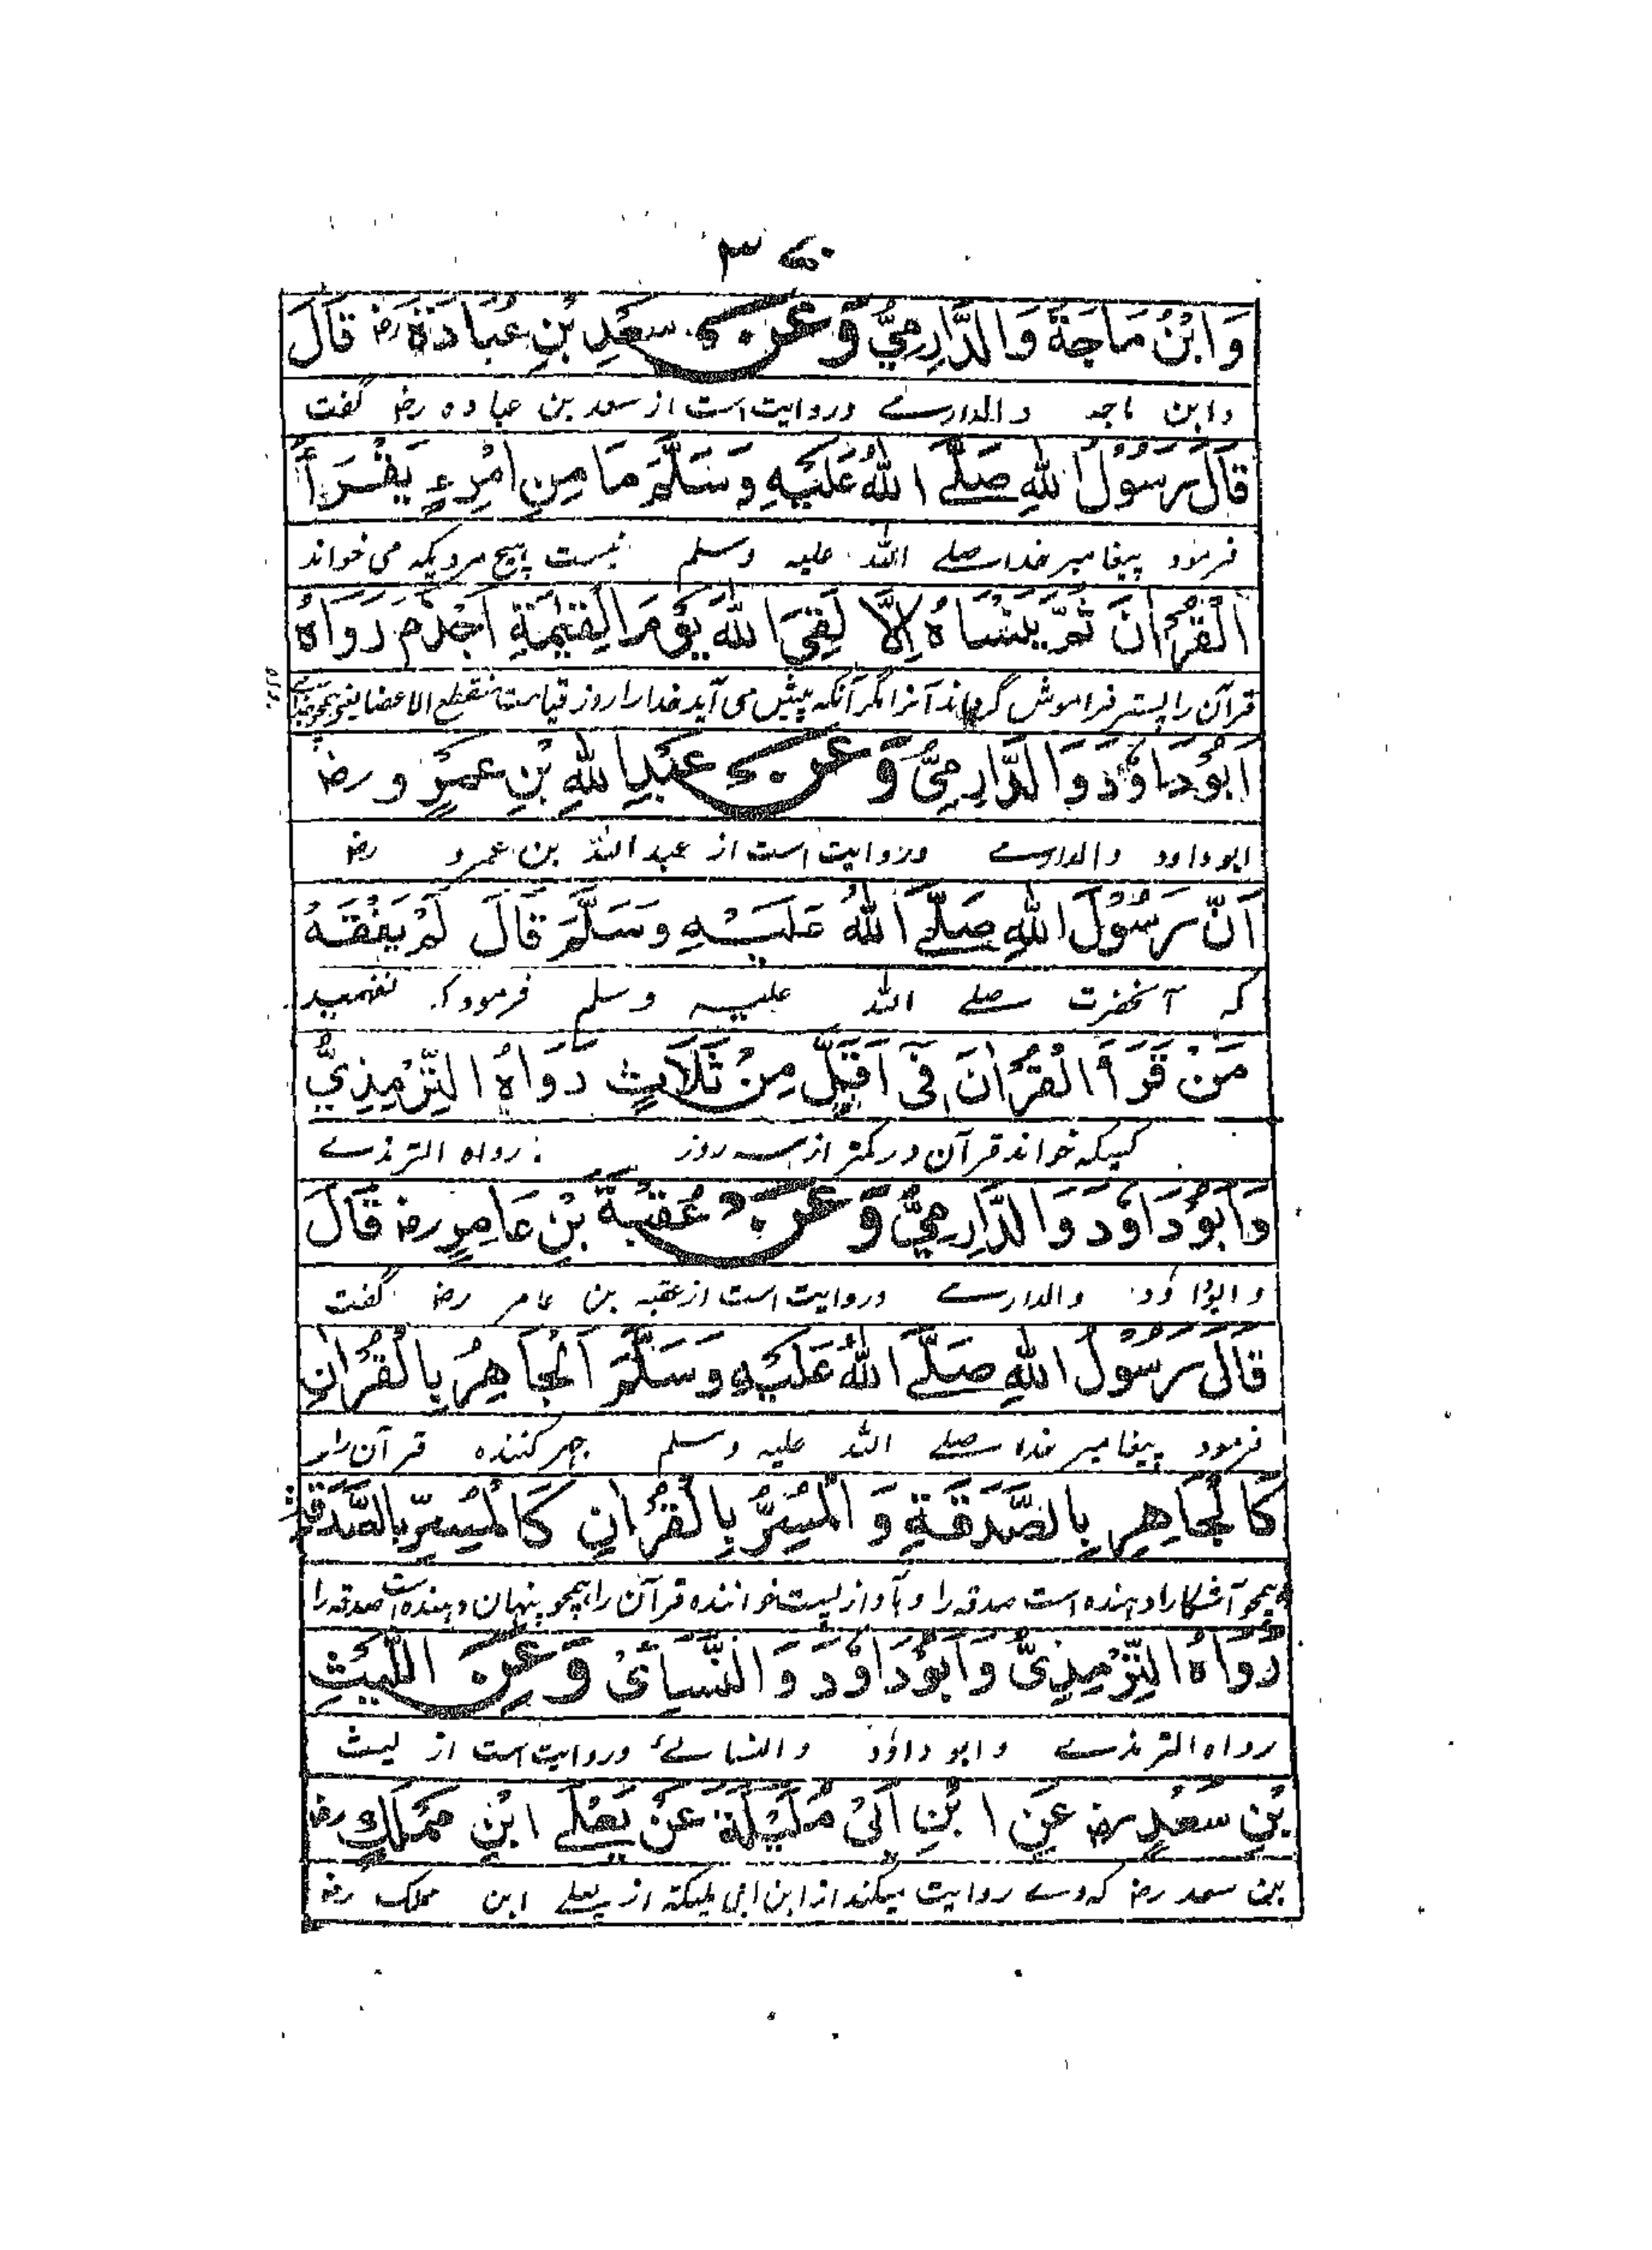 وَابْنُ مَاجَةَ وَالدَّارِمِيُّ وَعَنْ سَعْدِ بْنِ عُبَادَةَ رض قَالَ
وابن ماجه والدارمے وروایت است از سعد بن عباده رض گفت
قَالَ رَسُوْلُ اللهِ صَلَّے اللهُ عَلَيْهِ وَسَلَّمَ مَا مِنِ امْرِءٍ يَقْرَأُ
فرمود پیغامبر خدا صلے اللہ علیہ وسلم نیست ہیچ مردیکہ می خواند
الْقُرْاٰنَ ثُمَّ يَنْسَاهُ اِلَّا لَقِيَ اللهَ يَوْمَ الْقِيٰمَةِ اَجْذَمَ رَوَاهُ
قرآن را پستر فراموش گرداند آنرا مگر آنکہ پیش می آید خدا را روز قیامت منقطع الاعضا یعنی
اَبُوْدَاوٗدَ وَالدَّارِمِيُّ وَعَنْ عَبْدِ اللهِ بْنِ عَمْرٍو رض
ابوداود والدارمے وروایت است از عبد اللہ بن عمرو رض
اَنَّ رَسُوْلَ اللهِ صَلَّے اللهُ عَلَيْهِ وَسَلَّمَ قَالَ لَمْ يَفْقَهْ
کہ آنحضرت صلے اللہ علیہ وسلم فرمود کہ نفہمید
مَنْ قَرَأَ الْقُرْاٰنَ فِيْ اَقَلَّ مِنْ ثَلَاثٍ رَوَاهُ التِّرْمِذِيُّ
کسیکہ خواند قرآن در کمتر از سہ روز رواہ الترمذے
وَاَبُوْدَاوٗدَ وَالدَّارِمِيُّ وَعَنْ عُقْبَةَ بْنِ عَامِرٍ رض قَالَ
وابوداؤد والدارمے وروایت است از عقبہ بن عامر رض گفت
قَالَ رَسُوْلُ اللهِ صَلَّے اللهُ عَلَيْهِ وَسَلَّمَ اَلْجَاهِرُ بِالْقُرْاٰنِ
فرمود پیغامبر خدا صلے اللہ علیہ وسلم جہر کنندہ قرآن را
كَالْجَاهِرِ بِالصَّدَقَةِ وَالْمُسِرُّ بِالْقُرْاٰنِ كَالْمُسِرِّ بِالصَّدَقَةِ
ہمچو آشکارا دہندہ است صدقہ را و بآواز پست خوانندہ قرآن را ہمچو پنہان دہندہ است صدقہ را
رَوَاهُ التِّرْمِذِيُّ وَاَبُوْدَاوٗدَ وَالنَّسَائِيُّ وَعَنِ اللَّيْثِ
رواہ الترمذے وابو داؤد والنسائے وروایت است از لیث
بْنِ سَعْدٍ رض عَنِ ابْنِ اَبِيْ مُلَيْكَةَ عَنْ يَعْلَے ابْنِ مَمْلَكٍ رض
بن سعد رض کہ وے روایت میکند از ابن ابی ملیکة از یعلے ابن مملک رض